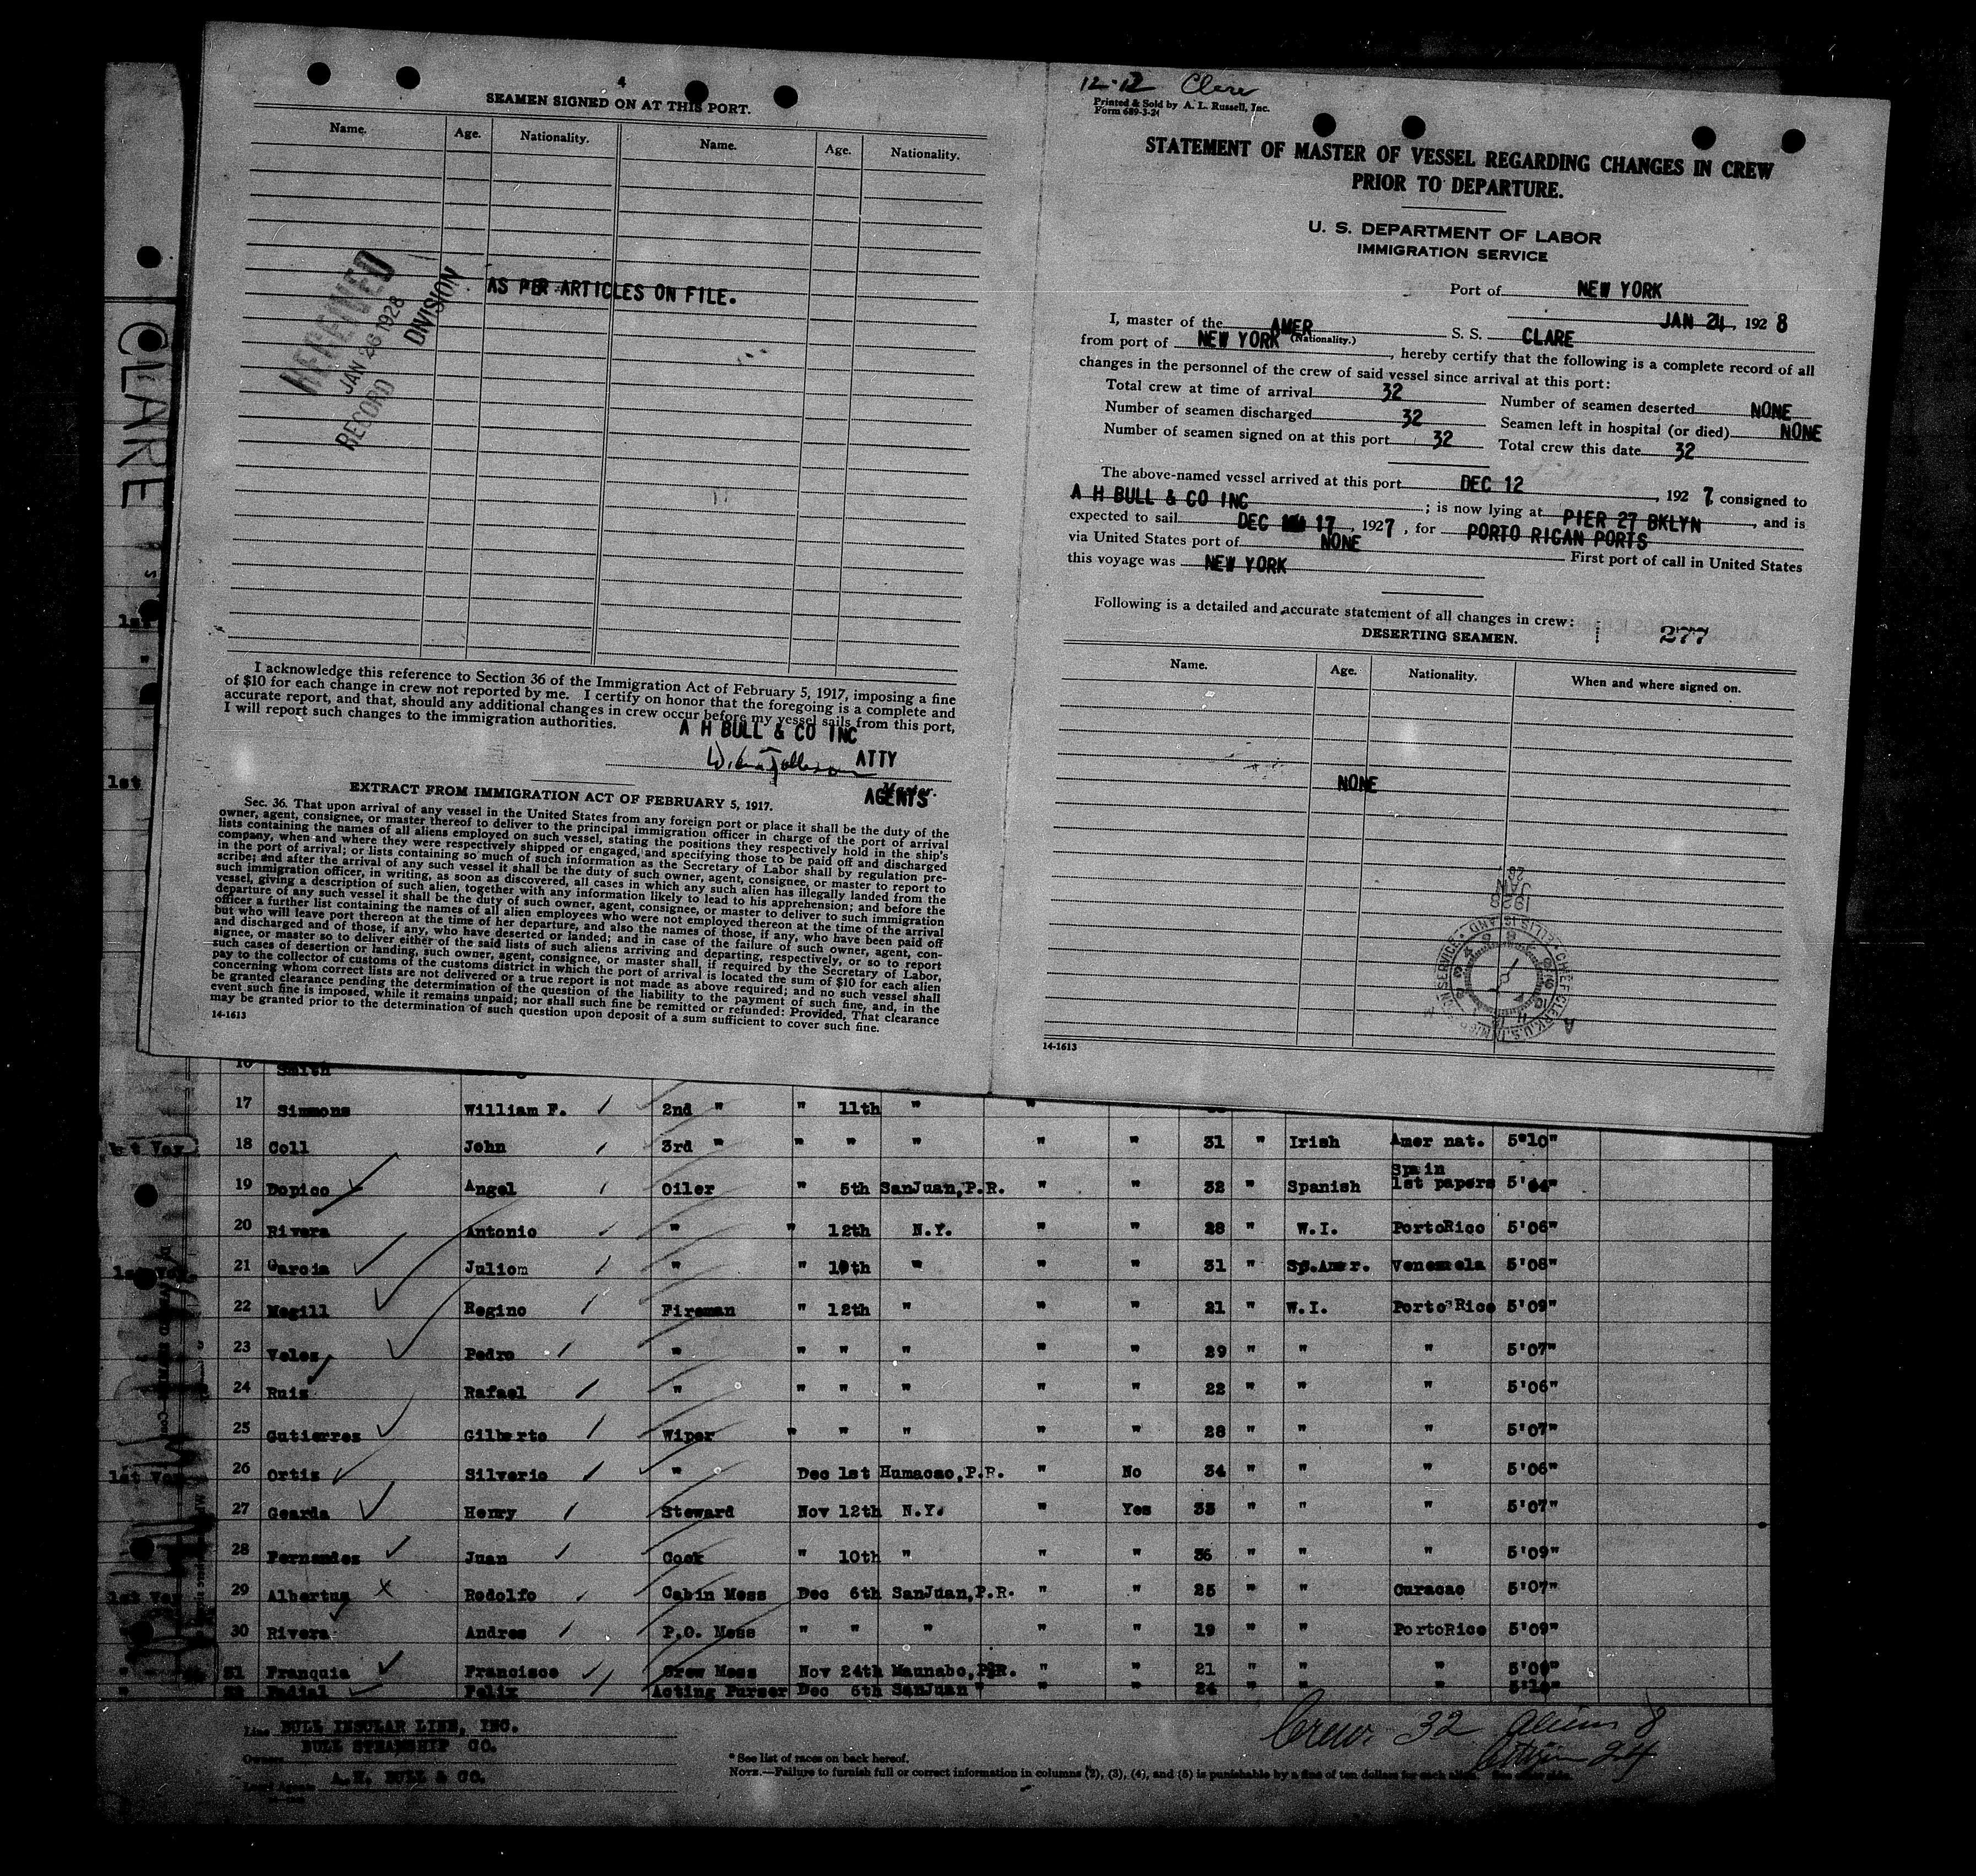 4
SEAMEN SIGNED ON AT THIS PORT.
Name. Age. Nationality. Name. Age. Nationality.
AS PER ARTICLES ON FILE.
RECEIVED
JAN 26 1928
RECORD DIVISION
I acknowledge this reference to Section 36 of the Immigration Act of February 5, 1917, imposing a fine
of $10 for each change in crew not reported by me. I certify on honor that the foregoing is a complete and
accurate report, and that, should any additional changes in crew occur before my vessel sails from this port,
I will report such changes to the immigration authorities.
A H BULL & CO INC
ATTY
AGENTS
EXTRACT FROM IMMIGRATION ACT OF FEBRUARY 5, 1917.
Sec. 36. That upon arrival of any vessel in the United States from any foreign port or place it shall be the duty of the
owner, agent, consignee, or master thereof to deliver to the principal immigration officer in charge of the port of arrival
lists containing the names of all aliens employed on such vessel, stating the positions they respectively hold in the ship's
company, when and where they were respectively shipped or engaged, and specifying those to be paid off and discharged
in the port of arrival; or lists containing so much of such information as the Secretary of Labor shall by regulation pre-
scribe; and after the arrival of any such vessel it shall be the duty of such owner, agent, consignee, or master to report to
such immigration officer, in writing, as soon as discovered, all cases in which any such alien has illegally landed from the
vessel, giving a description of such alien, together with any information likely to lead to his apprehension; and before the
departure of any such vessel it shall be the duty of such owner, agent, consignee, or master to deliver to such immigration
officer a further list containing the names of all alien employees who were not employed thereon at the time of the arrival
but who will leave port thereon at the time of her departure, and also the names of those, if any, who have been paid off
and discharged and of those, if any, who have deserted or landed; and in case of the failure of such owner, agent, con-
signee, or master so to deliver either of the said lists of such aliens arriving and departing, respectively, or so to report
such cases of desertion or landing, such owner, agent, consignee, or master shall, if required by the Secretary of Labor,
pay to the collector of customs of the customs district in which the port of arrival is located the sum of $10 for each alien
concerning whom correct lists are not delivered or a true report is not made as above required; and no such vessel shall
be granted clearance pending the determination of the question of the liability to the payment of such fine, and, in the
event such fine is imposed, while it remains unpaid; nor shall such fine be remitted or refunded: Provided, That clearance
may be granted prior to the determination of such question upon deposit of a sum sufficient to cover such fine.
14-1613
12-12 Clare
Printed & Sold by A. L. Russell, Inc.
Form 689-3-24
STATEMENT OF MASTER OF VESSEL REGARDING CHANGES IN CREW
PRIOR TO DEPARTURE.
U. S. DEPARTMENT OF LABOR
IMMIGRATION SERVICE
Port of NEW YORK
JAN 24, 1928
I, master of the AMER S. S. CLARE
(Nationality.)
from port of NEW YORK, hereby certify that the following is a complete record of all
changes in the personnel of the crew of said vessel since arrival at this port:
Total crew at time of arrival 32 Number of seamen deserted NONE
Number of seamen discharged 32 Seamen left in hospital (or died) NONE
Number of seamen signed on at this port 32 Total crew this date 32
The above-named vessel arrived at this port DEC 12, 1927 consigned to
A H BULL & CO INC; is now lying at PIER 27 BKLYN, and is
expected to sail DEC 17, 1927, for PORTO RICAN PORTS
via United States port of NONE First port of call in United States
this voyage was NEW YORK
Following is a detailed and accurate statement of all changes in crew:
277
DESERTING SEAMEN.
Name. Age. Nationality. When and where signed on.
NONE
14-1613
CLARE
1st
"
1st
16 Smith
17 Simmons William F. 2nd " " 11th " "
18 Coll John 3rd " " " " " " 31 " Irish Amer nat. 5'10"
19 Dopico Angel Oiler " 5th SanJuan,P.R. " " 32 " Spanish Spain 1st papers
20 Rivera Antonio " " 12th N.Y. " " 28 " W.I. PortoRico 5'06"
21 Garcia Juliom " " 10th " " " 31 " Sp.Amer. Venezuela 5'08"
22 Megill Regino Fireman " 12th " " " 21 " W.I. Porto Rico 5'09"
23 Velez Pedro " " " " " " 29 " " " 5'07"
24 Ruiz Rafael " " " " " " 22 " " " 5'06"
25 Gutierrez Gilberto Wiper " " " " " 28 " " " 5'07"
26 Ortiz Silverio " Dec 1st Humacao,P.R. " No 34 " " " 5'06"
27 Gearda Henry Steward Nov 12th N.Y. " Yes 33 " " " 5'07"
28 Fernandez Juan Cook " 10th " " " 36 " " " 5'09"
29 Albertus Rodolfo Cabin Mess Dec 6th SanJuan,P.R. " " 25 " " Curacao 5'07"
30 Rivera Andres P.O. Mess " " " " " 19 " " PortoRico 5'09"
31 Franquia Francisco Crew Mess Nov 24th Maunabo,P.R. " " 21 " " "
32 Padial Felix Acting Purser Dec 6th SanJuan " " " 24 " " " 5'10"
Line BULL INSULAR LINE, INC.
Owners BULL STEAMSHIP CO.
Local Agents A.H. BULL & CO.
* See list of races on back hereof.
NOTE.—Failure to furnish full or correct information in columns (2), (3), (4), and (5) is punishable by a fine of ten dollars for each alien. See other side.
Crew 32 Aliens 8
Citizen 24